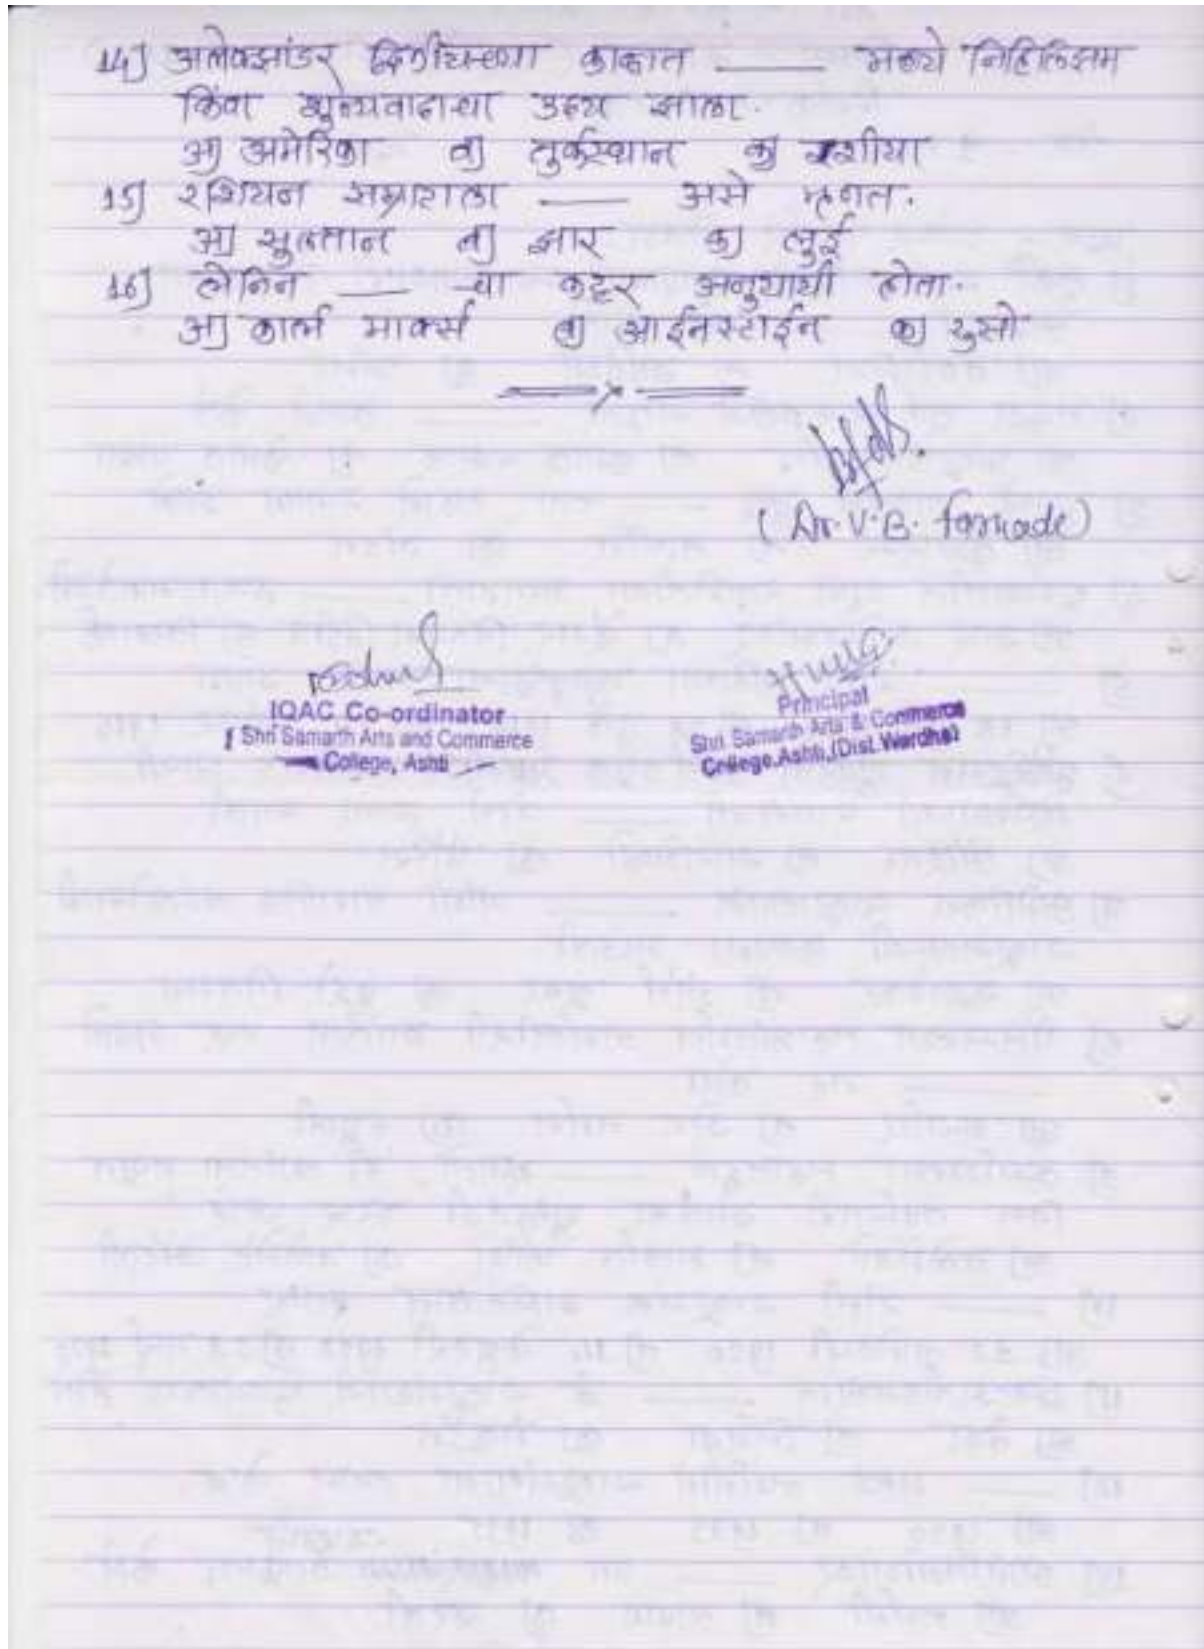 14) अलेक्झांडर द्वितीयच्या काळात ___ मध्ये निहिलिझम
किंवा शुन्यवादाचा उदय झाला.
अ) अमेरिका ब) तुर्कस्थान क) रशीया
15) रशियन सम्राटाला ___ असे म्हणत.
अ) सुलतान ब) झार क) लुई
16) लेनिन ___ चा कट्टर अनुयायी होता.
अ) कार्ल मार्क्स ब) आईनस्टाईन क) रुसो
(Dr. V. B.
IQAC Co-ordinator
Shri Samarth Arts and Commerce
College, Ashti
Principal
Shri Samarth Arts & Commerce
College,Ashti,(Dist.Wardha)